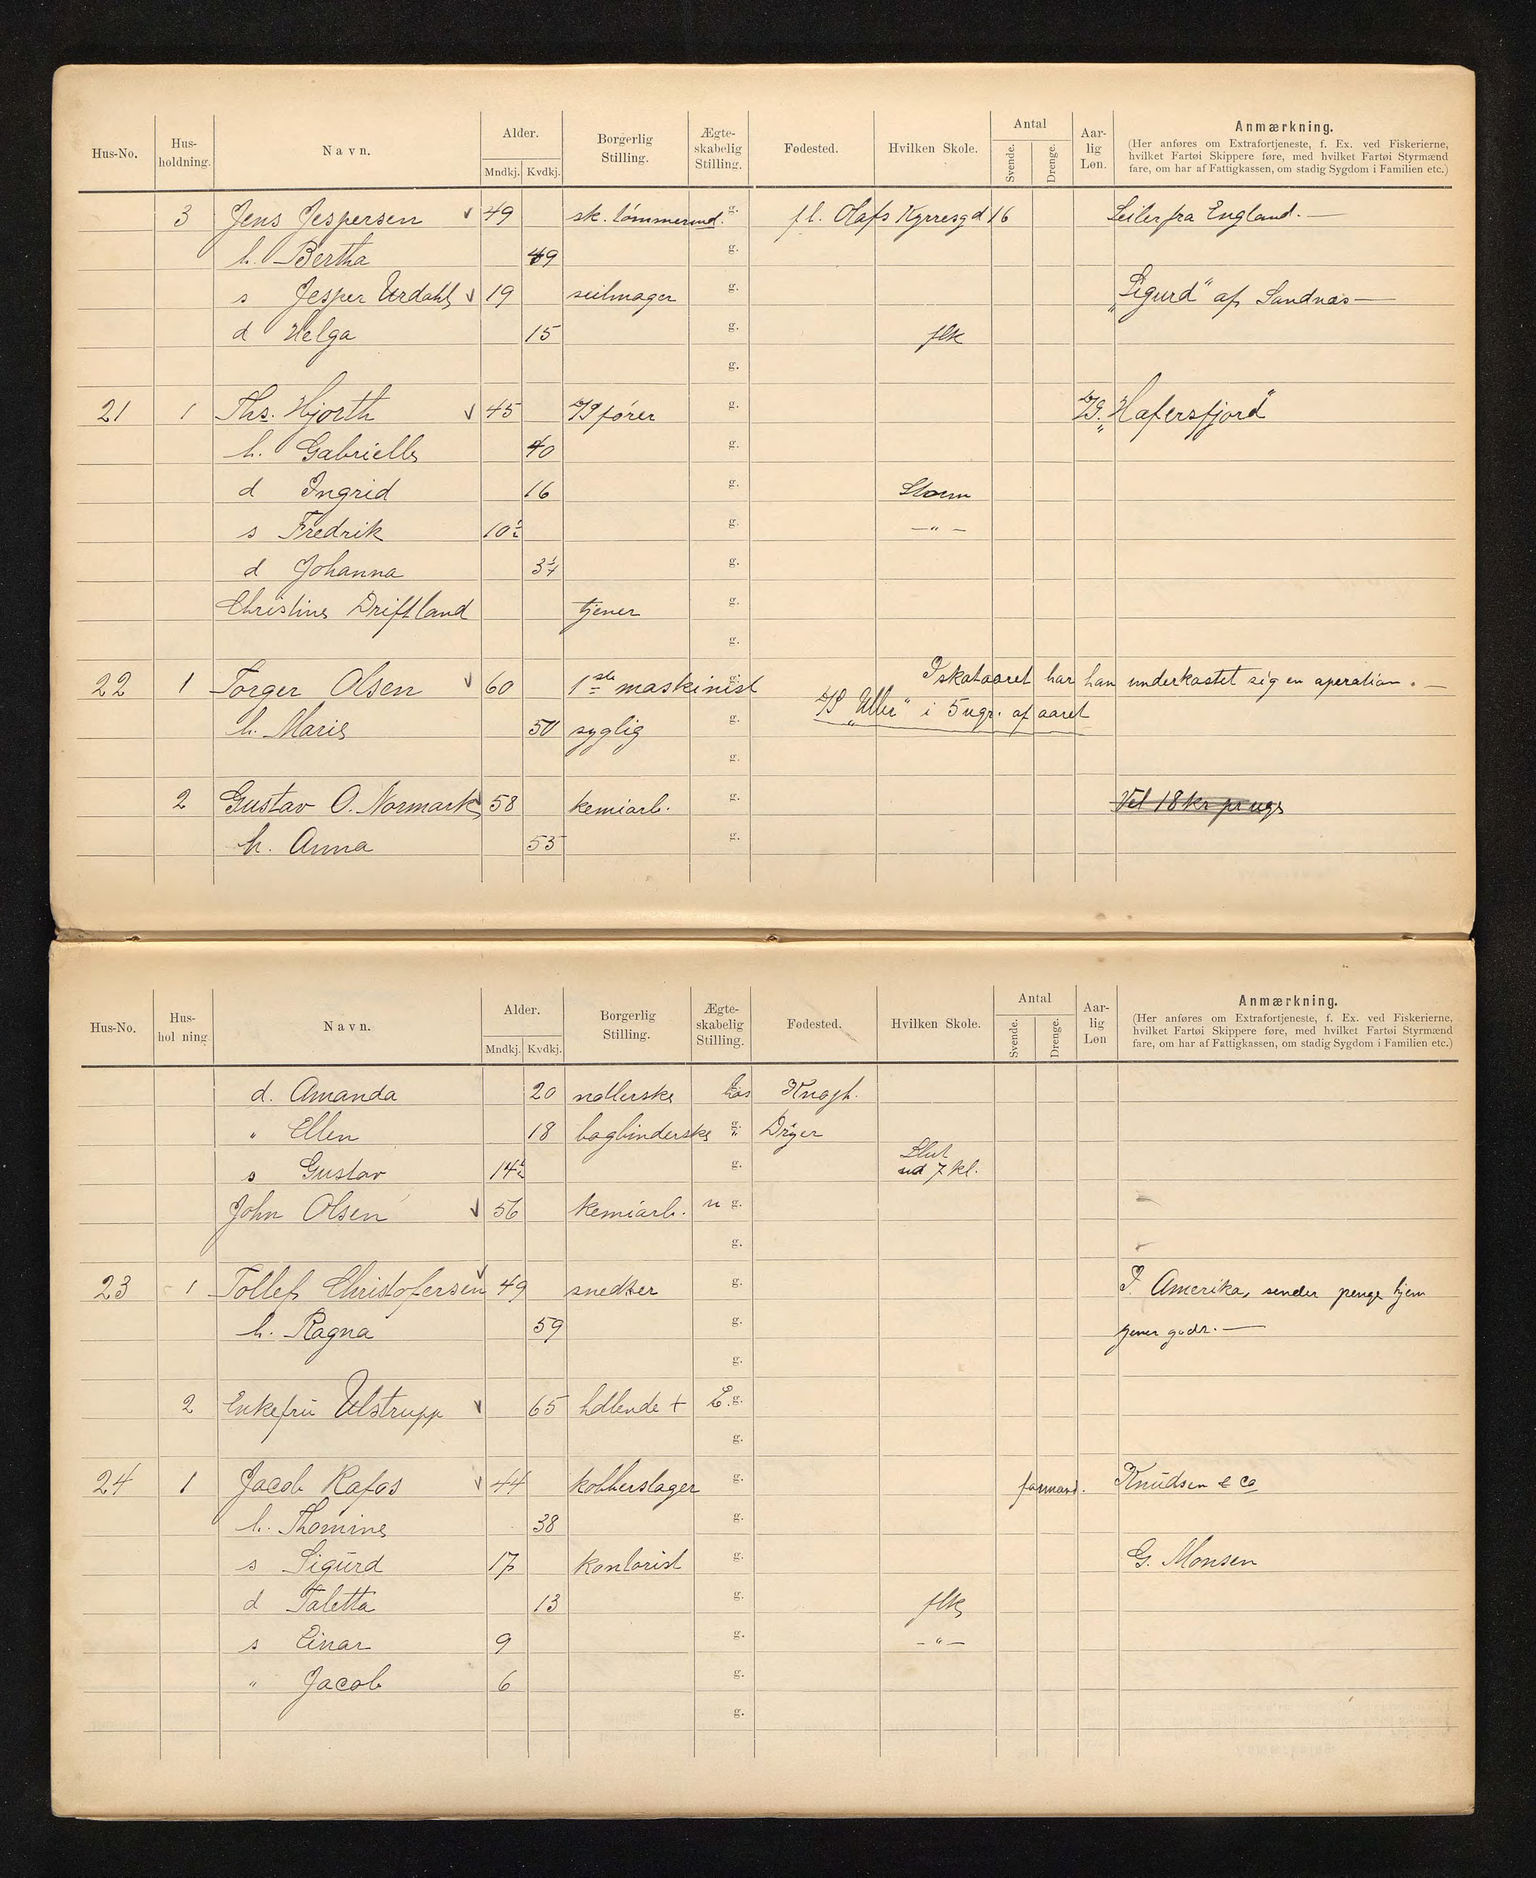 Hus-No. Hus-holdning. Navn. Alder. Mndkj. Kvdkj. Borgerlig Stilling. Ægte-skabelig Stilling. Fødested. Hvilken Skole. Antal Svende. Drenge. Aar-lig Løn. Anmærkning.
(Her anføres om Extrafortjeneste, f. Ex. ved Fiskerierne,
hvilket Fartøi Skippere føre, med hvilket Fartøi Styrmænd
fare, om har af Fattigkassen, om stadig Sygdom i Familien etc.)
3 Jens Jespersen √ 49 sk. tømmermd. g. fl. Olafs Kyrresgd 16 Seiler fra England. —
h. Bertha 49 g.
s Jesper Urdahl √ 19 seilmager g. „Sigurd" af Sandnæs —
d Helga 15 g. flk
g.
21 1 Ths. Hjorth √ 45 D/S fører g. D/S. „Hafersfjord"
h. Gabrielle 40 g.
d Ingrid 16 g. Storm
s Fredrik 10½ g. —"—
d Johanna 3¼ g.
Christine Driftland tjener g.
g.
22 1 Torger Olsen √ 60 1ste maskinist g. I skataaret har han underkastet sig en operation. —
h. Marie 50 syglig g. D/S „Uller" i 5 ugr. af aaret
g.
2 Gustav O. Normark √ 58 kemiarb. g. Vel 18 kr pr uge
h. Anna 55 g.
Hus-No. Hus-hol ning Navn. Alder. Mndkj. Kvdkj. Borgerlig Stilling. Ægte-skabelig Stilling. Fødested. Hvilken Skole. Antal Svende. Drenge. Aar-lig Løn Anmærkning.
(Her anføres om Extrafortjeneste, f. Ex. ved Fiskerierne,
hvilket Fartøi Skippere føre, med hvilket Fartøi Styrmænd
fare, om har af Fattigkassen, om stadig Sygdom i Familien etc.)
d. Amanda 20 hos
" Ellen 18 bogbinderske g. " Dreyer
s Gustav 14½ g. Slut ud 7 kl.
John Olsen √ 56 kemiarb. u g.
g.
23 1 Tollef Christofersen √ 49 snedker g. I Amerika, sender penge hjem
h. Ragna 59 g. tjener godt. —
g.
2 Enkefru Ulstrupp √ 65 hdlende + E. g.
g.
24 1 Jacob Rafos √ 44 kobberslager g. formand. Knudsen & Co
h. Thomine 38 g.
s Sigurd 17 kontorist g. G. Monsen
d Taletta 13 g. flk
s Einar 9 g. —"—
" Jacob 6 g.
g.